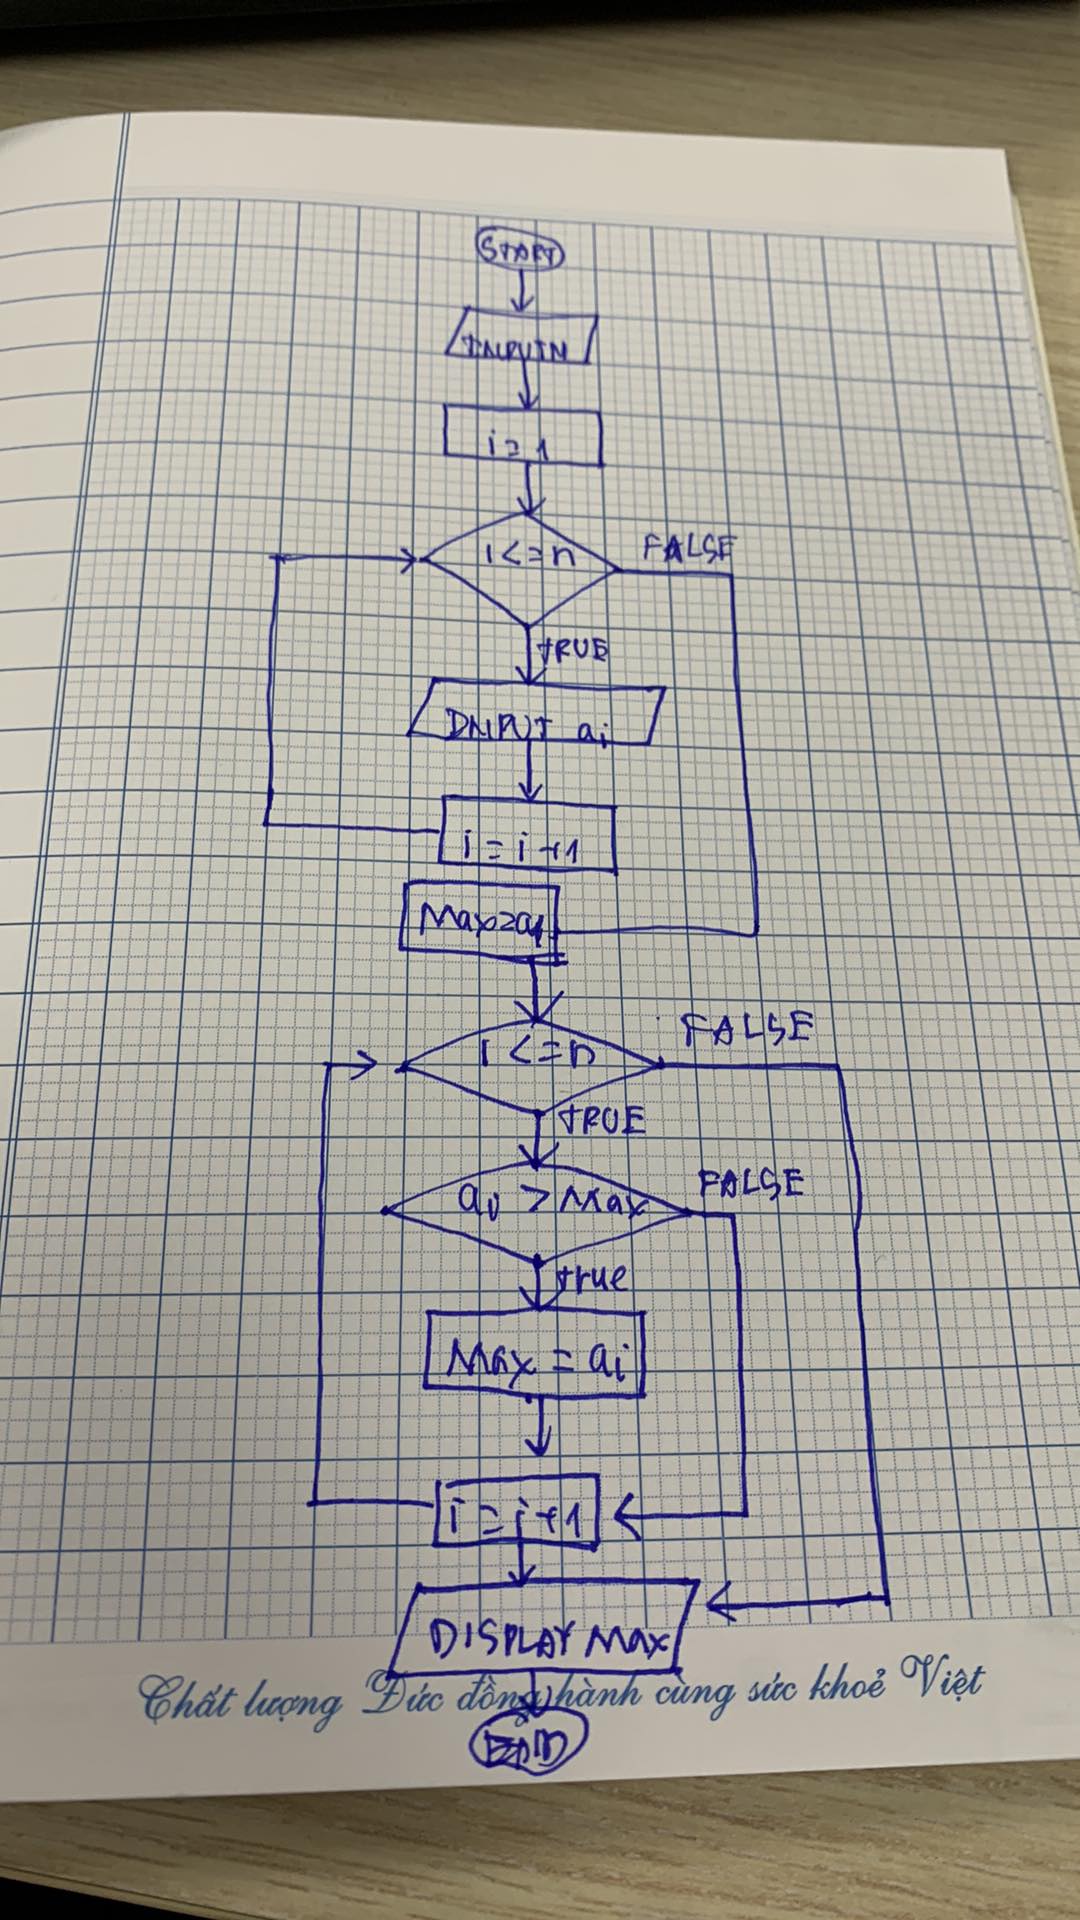 START
INPUT N
i = 1
i <= n
FALSE
TRUE
INPUT ai
i = i+1
Max=a1
i <= n
FALSE
TRUE
ai > Max
FALSE
true
Max = ai
i = i+1
DISPLAY Max
Chất lượng Đức đồng hành cùng sức khoẻ Việt
END